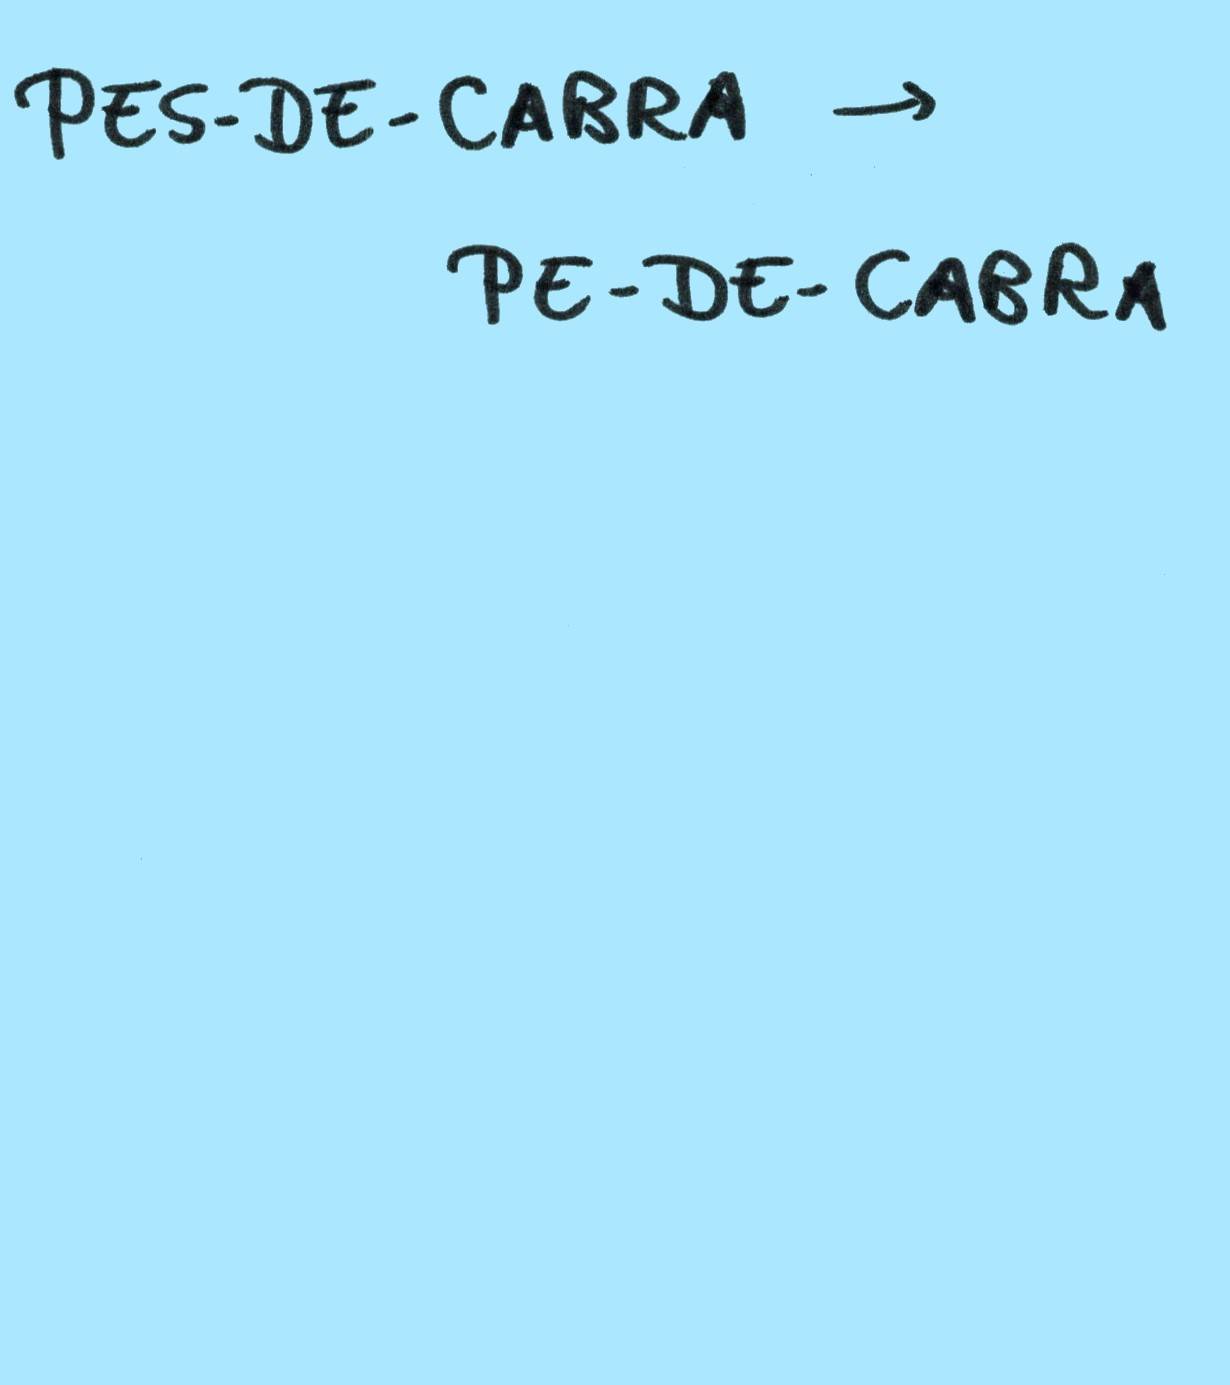 PES-DE-CABRA →
PE-DE-CABRA